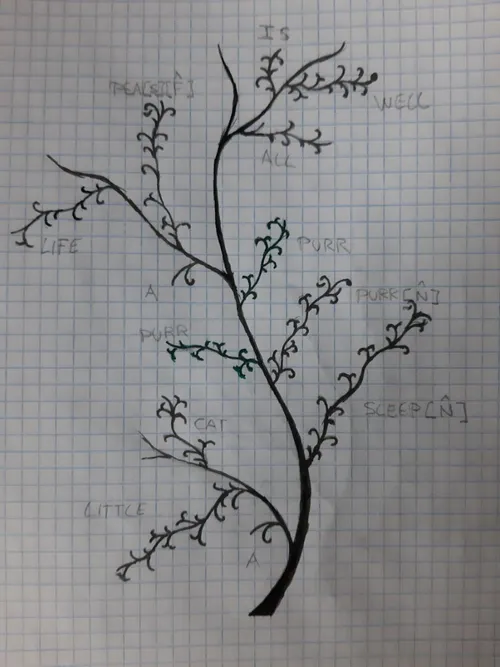 IS
WELL
ALL
LIFE
PURR
A
PURR[N̂]
PURR
SLEEP[N̂]
CAT
LITTLE
A